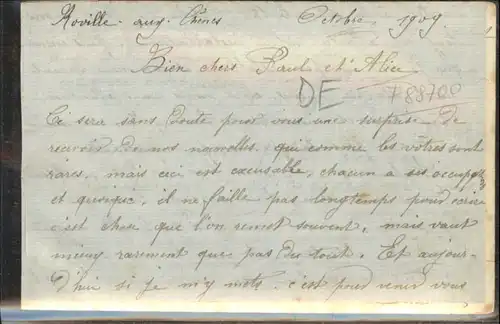 Roville-aux-Chênes Octobre, 1909.
Bien chers Paul et Alice
DE 788700
Ce sera sans doute pour vous une surprise de
recevoir de nos nouvelles, qui comme les vôtres sont
rares, mais ceci est excusable, chacun a ses occupations
et quoique, il ne faille pas longtemps pour écrire
c'est chose que l'on remet souvent, mais vaut
mieux rarement que pas du tout. Et aujour-
d'hui si je m'y mets, c'est pour venir vous